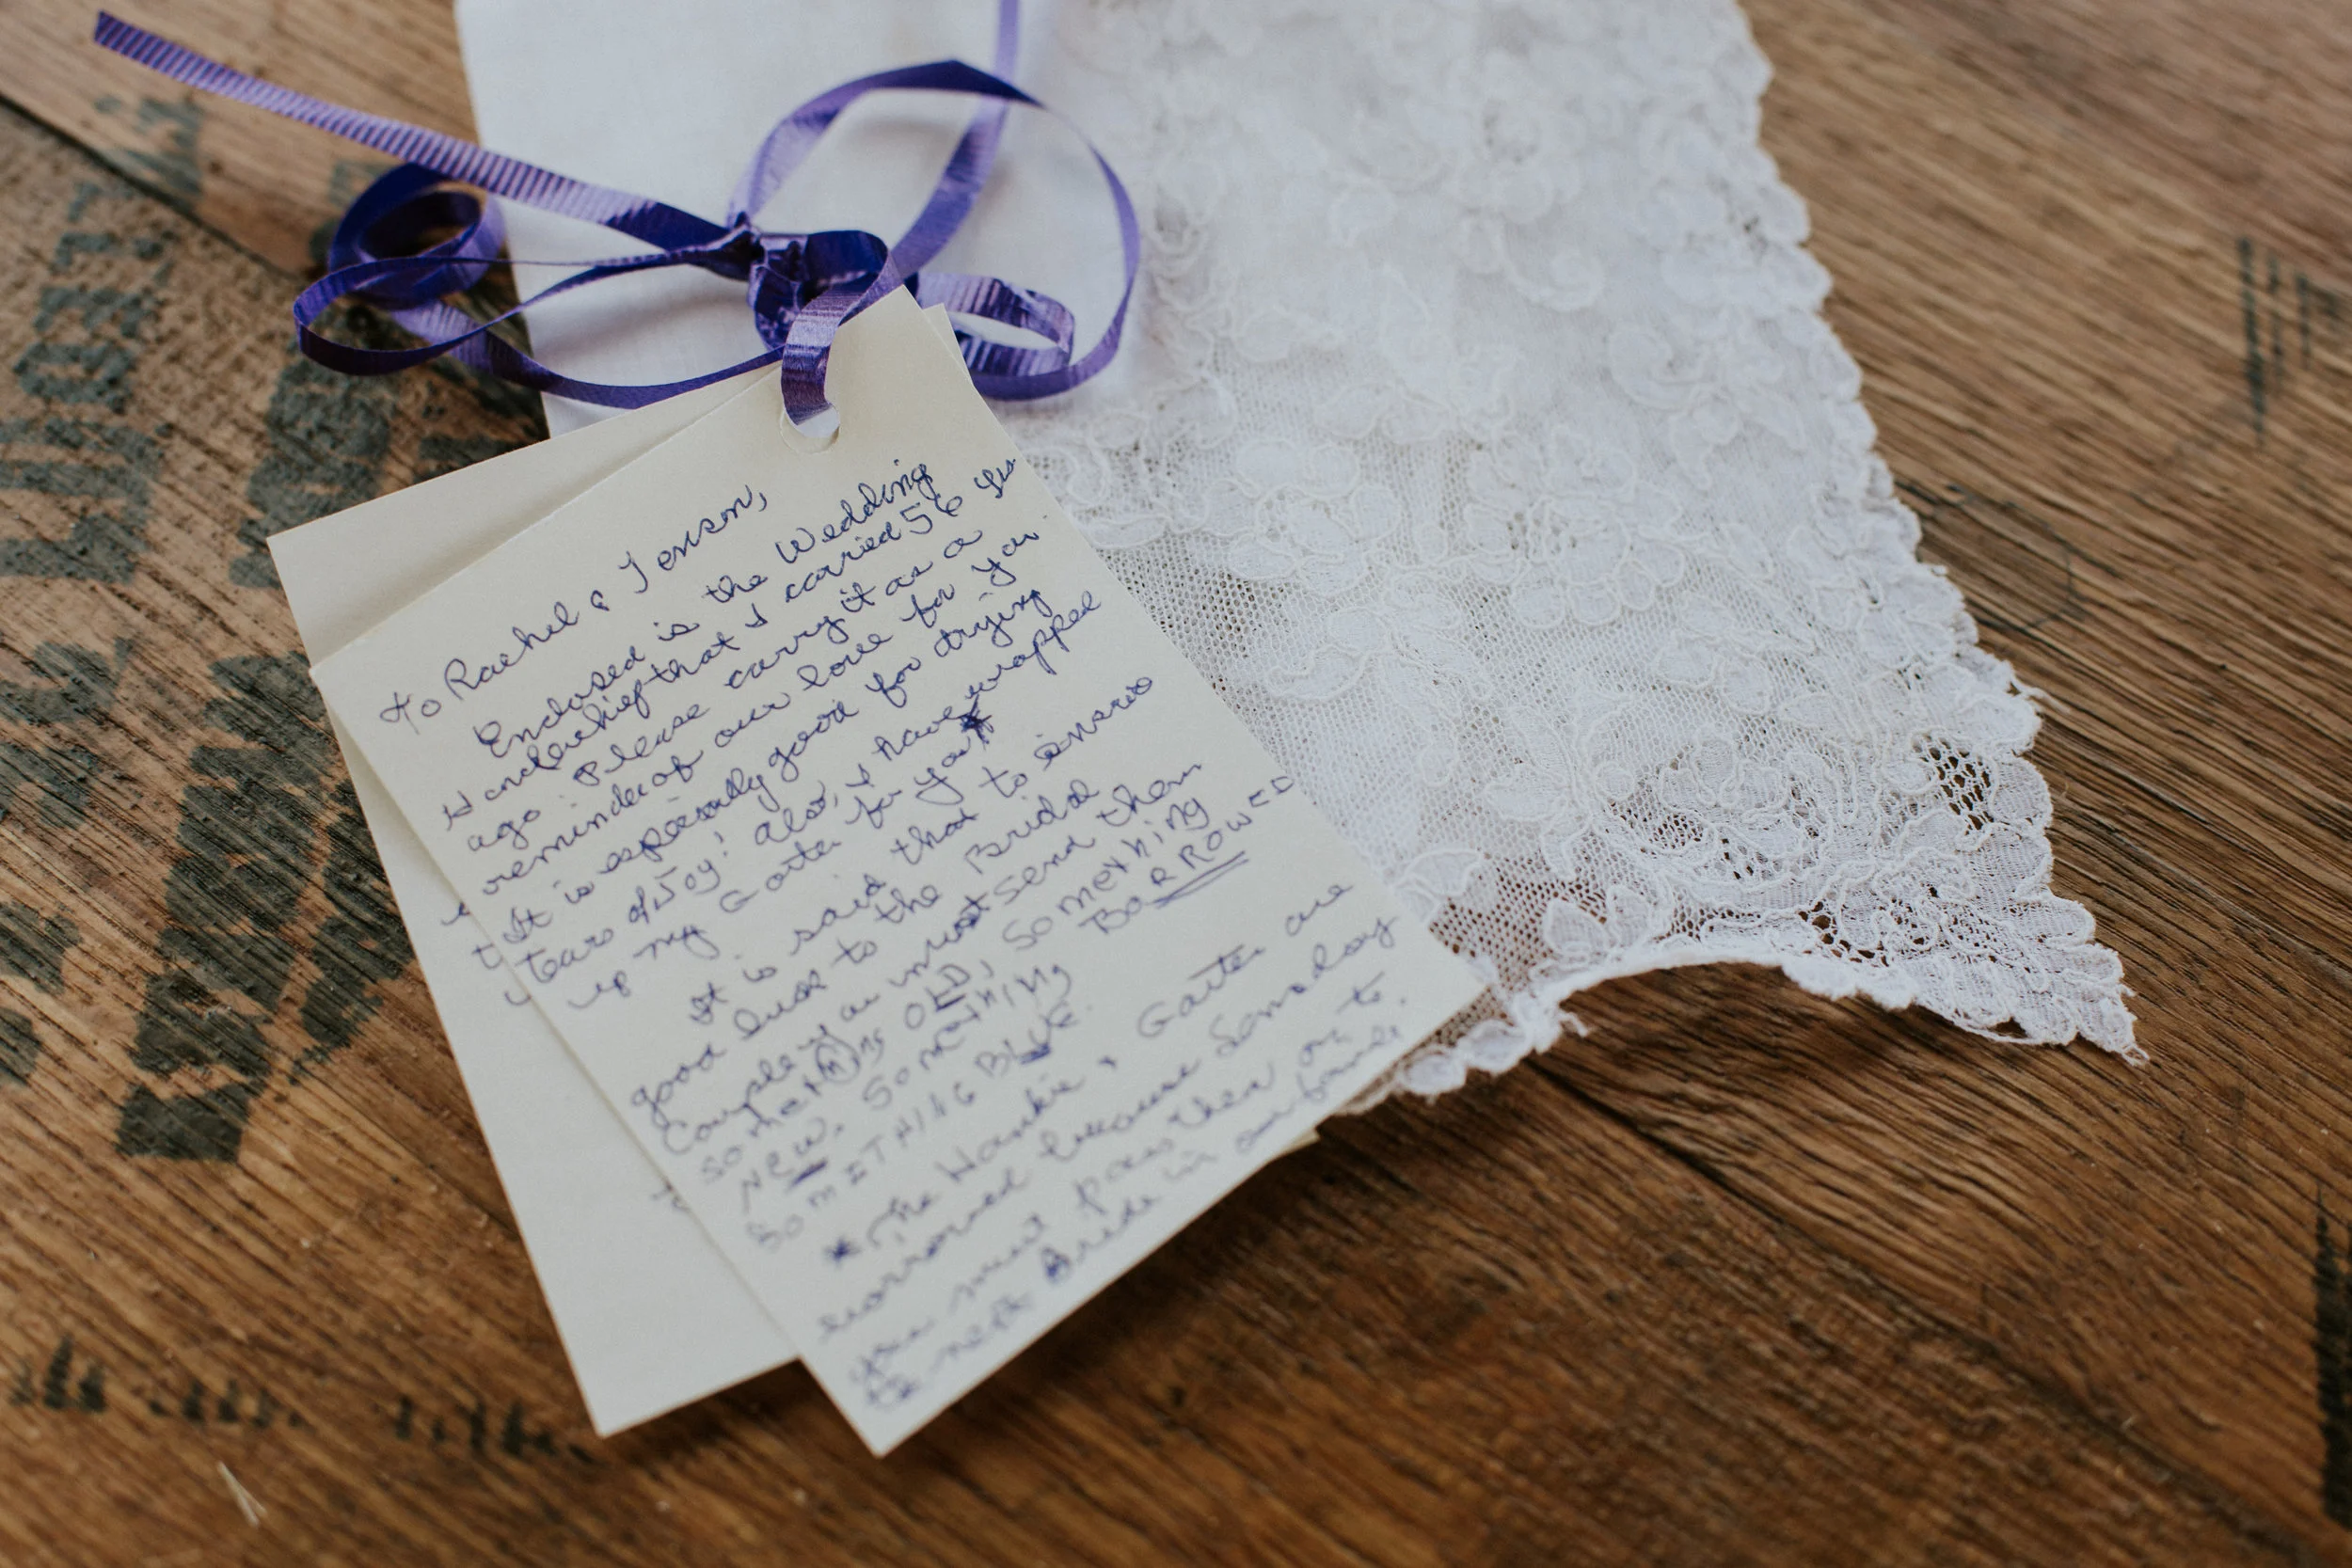 To Rachel & Jenson,
Enclosed is the Wedding
Handerchief that I carried 56 yrs
ago. Please carry it as a
reminder of our love for you.
It is especially good for drying
tears of Joy! Also, I have wrapped
up my Garter for you
It is said that to ensure
good luck to the Bridal
Couple you must send them
SOMETHING OLD, SOMETHING
NEW, SOMETHING BORROWED
SOMETHING BLUE.
* The Hankie, Garter are
borrowed because Someday
you must pass them on to
the next Bride in our family.